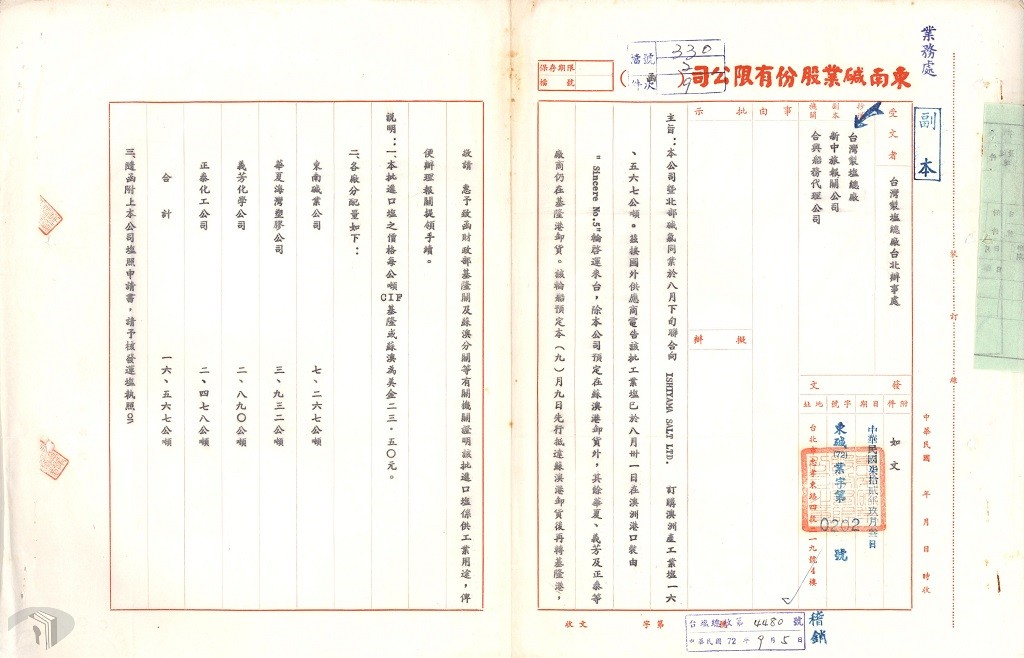 業務處
副本
東南碱業股份有限公司（函）
檔號 330
件次 9
保存期限
檔號
受文者
台灣製塩總廠台北辦事處
副本
機關
台灣製塩總廠
新中旅報關公司
合興船務代理公司
事由
批示
擬辦
發文
附件 如文
日期 中華民國柒拾貳年玖月叁日
字號 東碱(72)業字第0202號
地址 台北市忠孝東路四段二一九號4樓
主旨：本公司暨北部碱氯同業於八月下旬聯合向 ISHIYAMA SALT LTD. 訂購澳洲產工業塩一六
、五六七公噸。茲接國外供應商電告該批工業塩已於八月卅一日在澳洲港口裝由
"Sincere No.5"輪啓運來台，除本公司預定在蘇澳港卸貨外，其餘華夏、義芳及正泰等
廠商仍在基隆港卸貨。該輪船預定本（九）月九日先行抵達蘇澳港卸貨後再轉基隆港，
敬請 惠予致函財政部基隆關及蘇澳分關等有關機關證明該批進口塩係供工業用途，俾
便辦理報關提領手續。
說明：一、本批進口塩之價格每公噸CIF基隆或蘇澳為美金二三．五〇元。
二、各廠分配量如下：
東南碱業公司 七、二六七公噸
華夏海灣塑膠公司 三、九三二公噸
義芳化學公司 二、八九〇公噸
正泰化工公司 二、四七八公噸
合計 一六、五六七公噸
三、隨函附上本公司塩照申請書，請予核發運塩執照
裝訂線
中華民國 年 月 日 時收
收文 字第 號
台塩總收第4480號
中華民國72年9月5日
稽銷